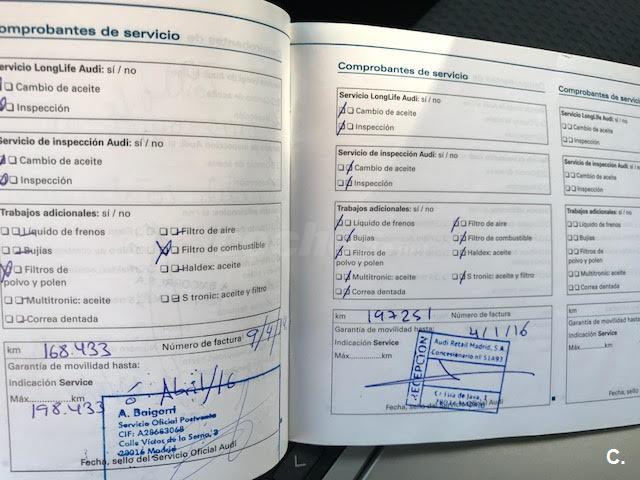 Comprobantes de servicio
ervicio LongLife Audi: sí / no
Cambio de aceite
Inspección
Servicio de inspección Audi: sí / no
Cambio de aceite
Inspección
Trabajos adicionales: sí / no
Líquido de frenos
Filtro de aire
Bujías
Filtro de combustible
Filtros de
polvo y polen
Haldex: aceite
Multitronic: aceite
S tronic: aceite y filtro
Correa dentada
km 168.433 Número de factura
Garantía de movilidad hasta:
Indicación Service
ó Abril/16
Máx..............km
198.433
A. Baigorri
Servicio Oficial Postventa
CIF: A28663068
28016 Madrid
Fecha, sello del Servicio Oficial Audi
Comprobantes de servicio
Servicio LongLife Audi: sí / no
Cambio de aceite
Inspección
Servicio de inspección Audi: sí / no
Cambio de aceite
Inspección
Trabajos adicionales: sí / no
Líquido de frenos
Filtro de aire
Bujías
Filtro de combustible
Filtros de
polvo y polen
Haldex: aceite
Multitronic: aceite
S tronic: aceite y filtro
Correa dentada
km 197251 Número de factura
Garantía de movilidad hasta: 4/1/16
Indicación Service
Máx..............km
RECEPCION
Audi Retail Madrid, S.A.
Concesionario nº 51A93
Fecha, sello del Servicio Oficial Audi
Comprobantes de servic
Servicio LongLife Audi: sí / no
Cambio de aceite
Inspección
Servicio de inspección Audi: sí / no
Cambio de aceite
Inspección
Trabajos adicionales: sí / no
Líquido de frenos
Bujías
Filtros de
polvo y polen
Multitronic: aceite
Correa dentada
km
Garantía de movilidad hasta:
Indicación Service
Máx..............km
Fecha, sell
C.